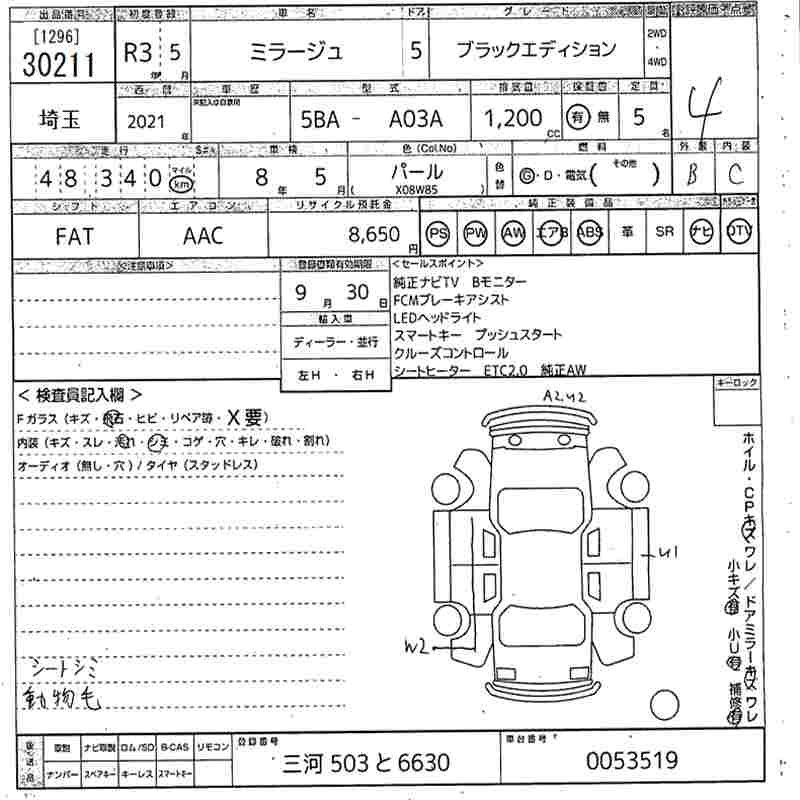 出品番号 初度登録 車名 ドア グレード 駆動 評価点
[1296]
30211
R3年 5月 ミラージュ 5 ブラックエディション 2WD・4WD 4
西暦 車歴 型式 排気量 保証書 定員
埼玉 2021年 5BA - A03A 1,200cc 有 無 5名
走行 車検 色(Col.No) 燃料 外装 内装
48340 マイル km 8年 5月 パール 色替 G・D・電気( その他 ) B C
( X08W85 )
シフト エアコン リサイクル預託金 純正装備品
FAT AAC 8,650円 PS PW AW エアB ABS 革 SR ナビ TV
<注意事項> 登録書類有効期限 <セールスポイント>
純正ナビTV Bモニター
9月 30日
FCMブレーキアシスト
輸入車
LEDヘッドライト
ディーラー・並行
スマートキー プッシュスタート
クルーズコントロール
左H・右H
シートヒーター ETC2.0 純正AW
キーロック
<検査員記入欄>
A2 U2
Fガラス(キズ・飛石・ヒビ・リペア跡・X要)
内装(キズ・スレ・汚れ・シミ・コゲ・穴・キレ・破れ・割れ)
オーディオ(無し・穴)/タイヤ(スタッドレス)
U1
W2
ホイル・CPキズワレ/ドアミラーキズワレ
小キズ有 小U有 補修有
シートシミ
動物毛
後送品 取説 ナビ取説 ロム/SD B-CAS リモコン 登録番号 車台番号
ナンバー スペアキー キーレス スマートキー
三河 503 と 6630
0053519